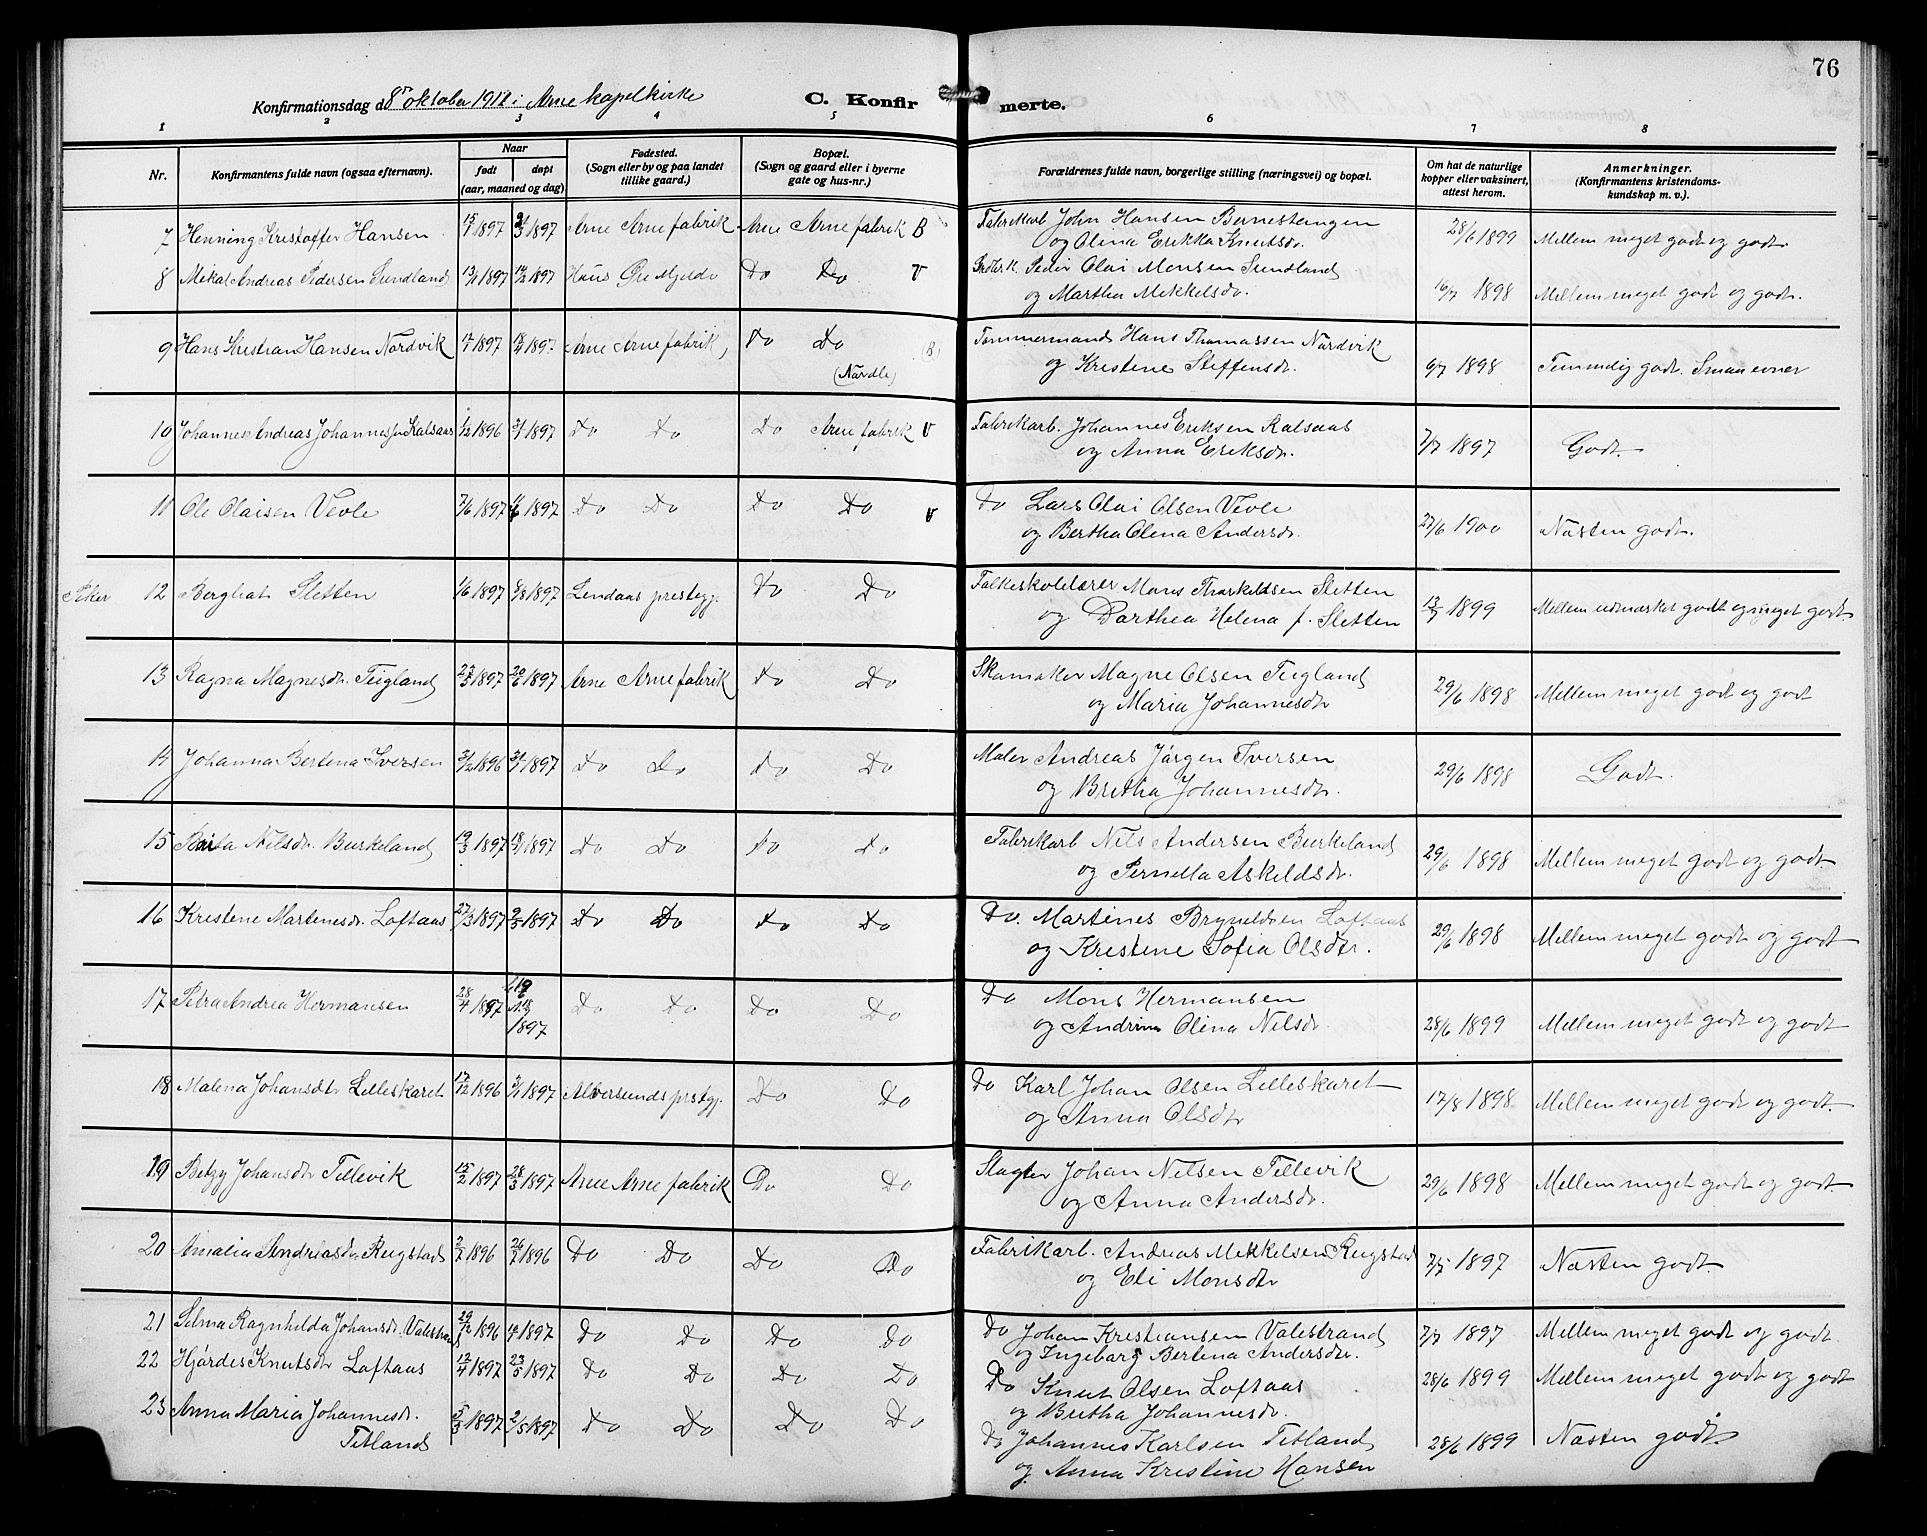 76
Konfirmationsdag d. 8de oktober 1911 i Arne kapelkirke
C. Konfirmerte.
1 2 3 4 5 6 7 8
Nr. Konfirmantens fulde navn (ogsaa efternavn). Naar født døpt (aar, maaned og dag) Fødested. (Sogn eller by og paa landet tillike gaard.) Bopæl. (Sogn og gaard eller i byerne gate og hus-nr.) Forældrenes fulde navn, borgerlige stilling (næringsvei) og bopæl. Om hat de naturlige kopper eller vaksinert, attest herom. Anmerkninger. (Konfirmantens kristendomskundskap m. v.).
7 Henning Kristoffer Hansen 15/1 1897 1897 Arne Arne fabrik Arne Arne fabrik B Fabrikarb John Hansen Bernestangen 28/6 1899 Mellem meget godt og godt.
og Olina Erikka Knutsdr.
8 Mikal Andreas Pedersen Sundland 13/1 1897 14/2 1897 Haus Øvre Mjelde Do Do V Peder Olai Monsen Sundland 16/7 1898 Mellem meget godt og godt.
og Martha Mikkelsdr.
9 Hans Kristian Hansen Nordvik 1897 18/4 1897 Arne Arne fabrik, Do Do (B) Tømmermand Hans Thomassen Nordvik 6/7 1898 Temmelig godt. Smaa evner
(Nordli) og Kristine Steffensdr.
10 Johannes Andreas Johannessen Kalsaas 1/12 1896 3/1 1897 Do Do Do Arne fabrik V Fabrikarb. Johannes Eriksen Kalsaas 7/7 1897 Godt.
og Anna Eriksdr.
11 Ole Olaisen Vevle 7/6 1897 1897 Do Do Do Do V Do Lars Olai Olsen Vevle 27/6 1900 Næsten godt.
og Bertha Olina Andersdr.
12 Bergliot Sletten 1/6 1897 9/8 1897 Lindaas prestegj. Do Do Folkeskolelærer Mons Thorkildsen Sletten 13/7 1899 Mellem udmerket godt og meget godt
og Dorthea Helena f. Sletten
13 Ragna Magnesdr. Tugland 23/3 1897 20/6 1897 Arne Arne fabrik Do Do Skomaker Magne Olsen Tugland 29/6 1898 Mellem meget godt og godt
og Maria Johannesdtr
14 Johanna Bertina Iversen 3/12 1896 31/1 1897 Do Do Do Do Maler Andreas Jørgen Iversen 29/6 1898 Godt.
og Bretha Johannesdr.
15 Brita Nilsdr. Burkeland 19/3 1897 18/4 1897 Do Do Do Do Fabrikarb Nils Andersen Burkeland 29/6 1898 Mellem meget godt og godt
og Pernella Askeldsdr.
16 Kristine Martinesdr. Loftaas 27/3 1897 9/5 1897 Do Do Do Do Do. Martines Bryneldsen Loftaas 29/6 1898 Mellem meget godt og godt
og Kristine Sofia Olsdtr.
17 Petra Andrea Hermansen 28/4 1897 1897 Do Do Do Do Do Mons Hermansen 28/6 1899 Mellem meget godt og godt
og Andrina Olina Nilsdr.
18 Malena Johansdtr Lilleskaret 17/12 1896 3/1 1897 Alversunds prstgj. Do Do Do Karl Johan Olsen Lilleskaret 17/8 1898 Mellem meget godt og godt.
og Anna Olsdtr
19 Betzy Johansdtr Tellevik 15/2 1897 28/3 1897 Arne Arne fabrik Do Do Slagter Johan Nilsen Tellevik 29/6 1898 Mellem meget godt og godt.
og Anna Andersdr.
20 Amalia Andreasdr. Rugstad 2/7 1896 26/7 1896 Do Do Do Do Fabrikarb. Andreas Mikkelsen Rugstad 7/7 1897 Næsten godt.
og Eli Monsdtr
21 Selma Ragnhilda Johansdr. Valestrand 29/12 1896 1897 Do Do Do Do Do Johan Kristiansen Valestrand 7/7 1897 Mellem meget godt og godt
og Ingeborg Bertina Andersdtr.
22 Hjørdes Knutsdtr Loftaas 12/4 1897 23/5 1897 Do Do Do Do Do Knut Olsen Loftaas 28/6 1899 Mellem meget godt og godt
og Bretha Johannesdr.
23 Anna Maria Johannesdr. 5/3 1897 2/5 1897 Do Do Do Do Do Johannes Karlsen Titland 28/6 1899 Næsten godt.
Titland og Anna Kristine Hansen